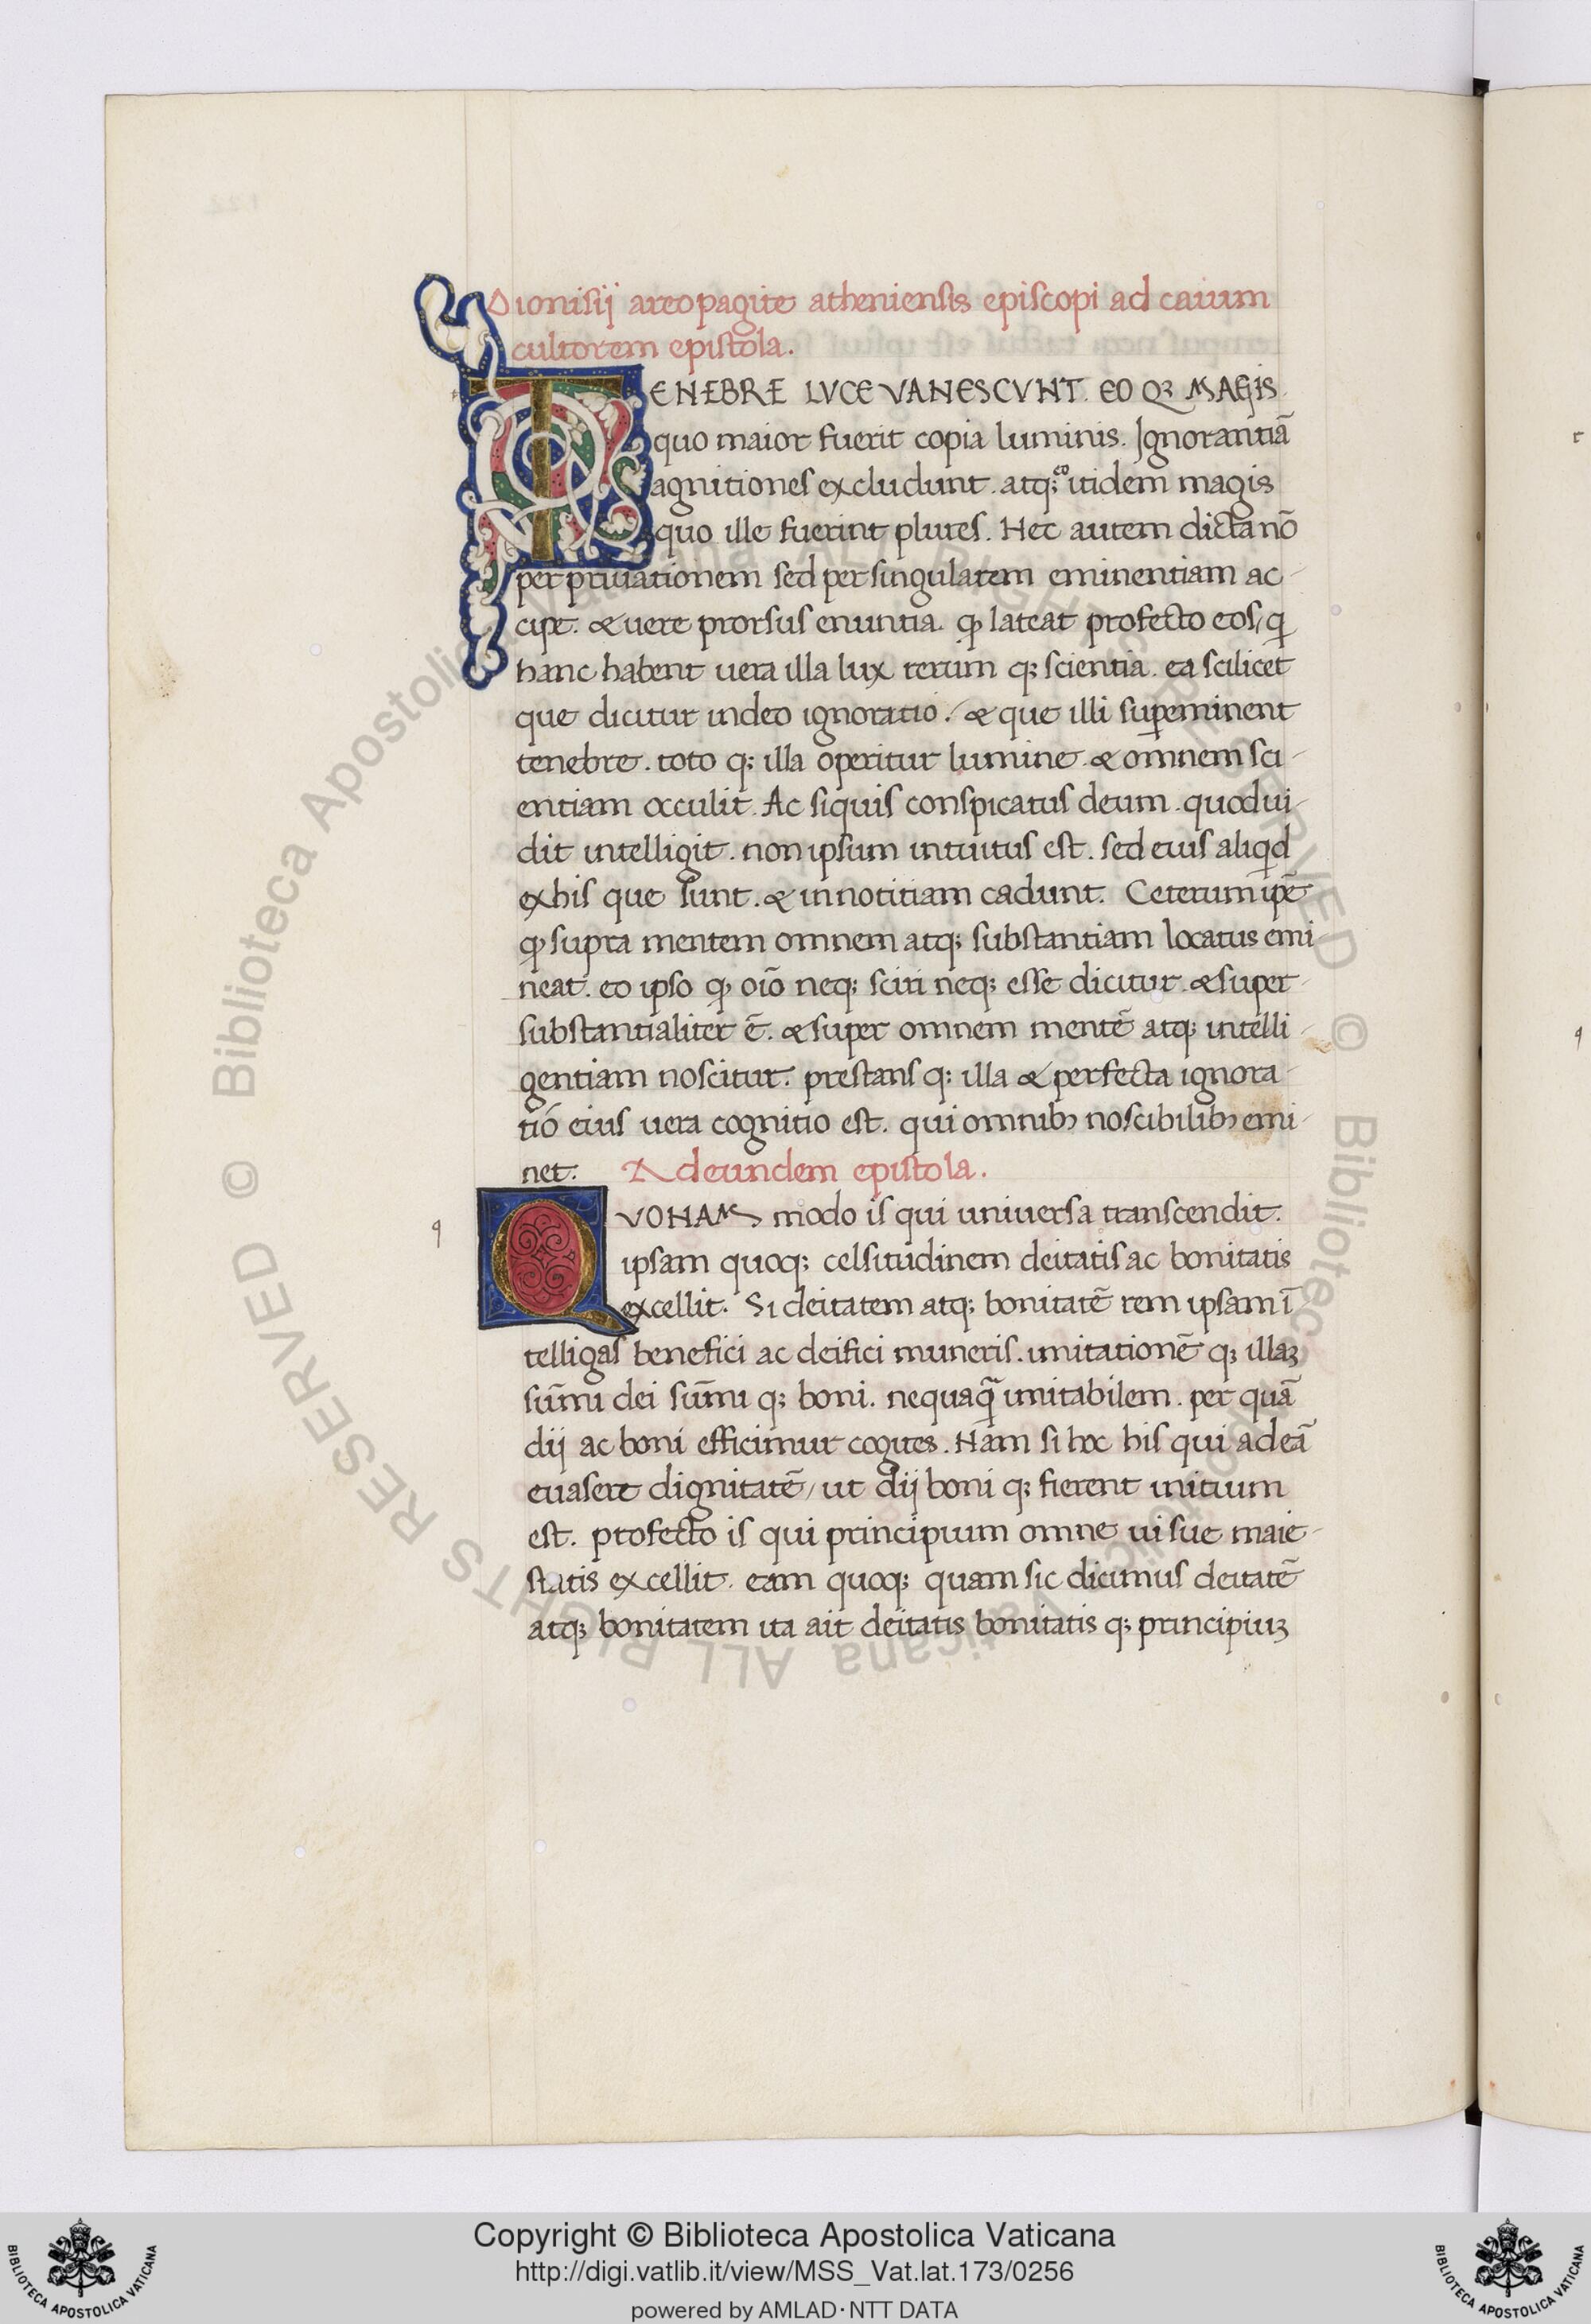 Dionisij areopagite atheniensis episcopi ad caium
cultorem epistola.
TENEBRE LVCE VANESCVNT. EO Q; MAGIS.
quo maior fuerit copia luminis. Ignorantiā
agnitiones excludunt. atq; eo itidem magis
quo ille fuerint plures. Hec autem dicta nō
per priuationem sed per singularem eminentiam ac-
cipe. & uere prorsus enuntia. ꝙ lateat profecto eos/ qi
hanc habent uera illa lux rerum q; scientia. ea scilicet
que dicitur in deo ignoratio. / & que illi suꝑeminent
tenebre. toto q; illa operitur lumine. & omnem sci-
entiam occulit. Ac siquis conspicatus deum. quod ui-
dit intelligit. non ipsum intuitus est. sed eius aliqd
ex his que sunt. & in notitiam cadunt. Ceterum ipē
ꝙ supra mentem omnem atq; substantiam locatus emi-
neat. eo ipso ꝙ oīo neq; sciri neq; esse dicitur. & super-
substantialiter ē. & super omnem mentē atq; intelli-
gentiam noscitur. prestans q; illa & perfecta ignora-
tiō eius uera cognitio est. qui omnibꝫ noscibilibꝫ emi-
net. Ad eundem epistola.
QVONAM modo is qui uniuersa transcendit.
ipsam quoq; celsitudinem deitatis ac bonitatis
excellit. Si deitatem atq; bonitatē rem ipsam ī
telligas benefici ac deifici muneris. imitationē q; illaꝫ
sūmi dei sūmi q; boni. nequaqā imitabilem. per quā
dij ac boni efficimur cogites. Nam si hoc his qui ad eā
euasere dignitatē/ ut dij boni q; fierent initium
est. profecto is qui principium omne ui sue maie-
statis excellit. eam quoq; quam sic dicimus deitatē
atq; bonitatem ita ait deitatis bonitatis q; principiuꝫ
© Biblioteca Apostolica Vaticana ALL RIGHTS RESERVED © Biblioteca Apostolica Vaticana ALL RIGHTS RESERVED
Copyright © Biblioteca Apostolica Vaticana
http://digi.vatlib.it/view/MSS_Vat.lat.173/0256
powered by AMLAD·NTT DATA
BIBLIOTECA APOSTOLICA VATICANA
BIBLIOTECA APOSTOLICA VATICANA